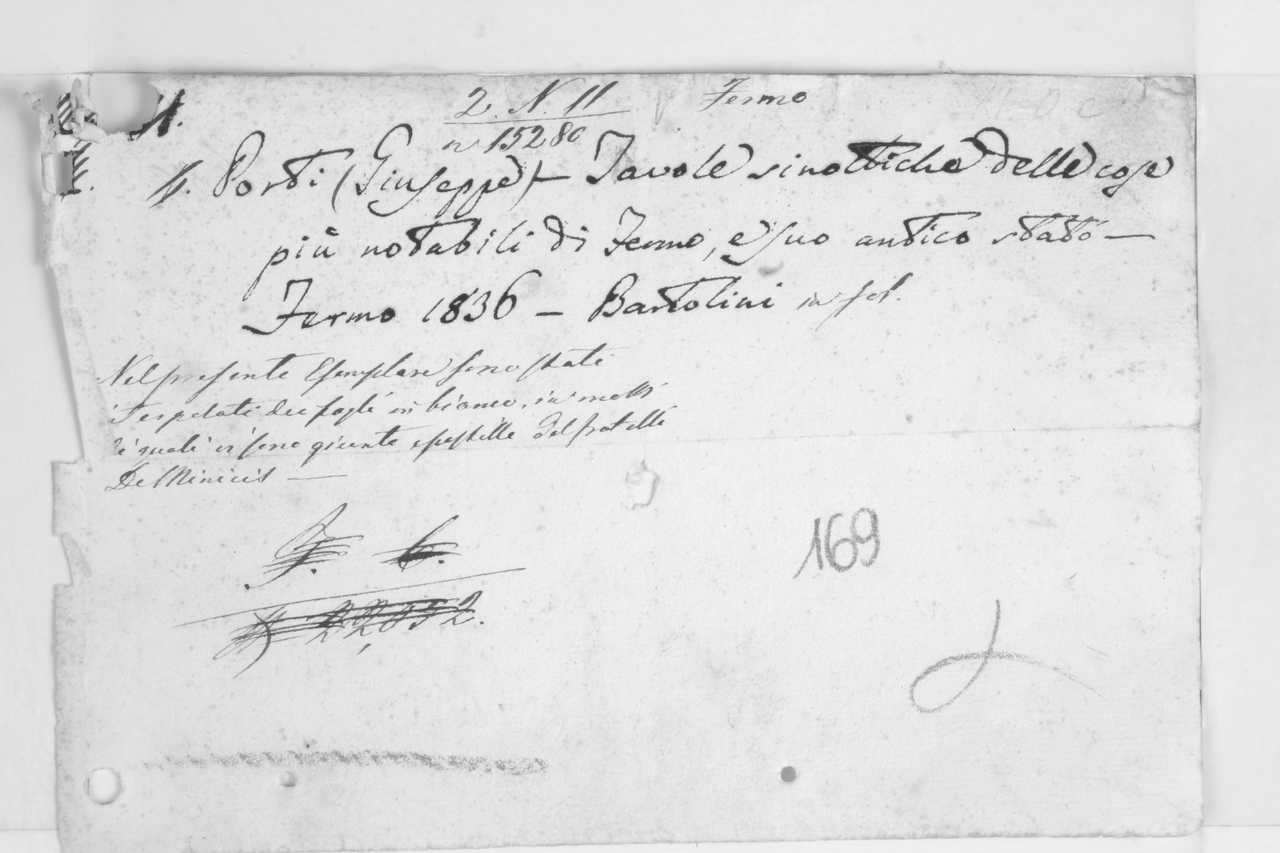 2. N. 11 Fermo
n° 15280
Porti (Giuseppe) – Tavole sinottiche delle cose
più notabili di Fermo, e suo antico stato –
Fermo 1836 – Bartolini in fol.
Nel presente Esemplare sono stati
fogli in bianco, in molti
de quali vi sono giunte e postille dei fratelli
De Minicis —
169
22,852.